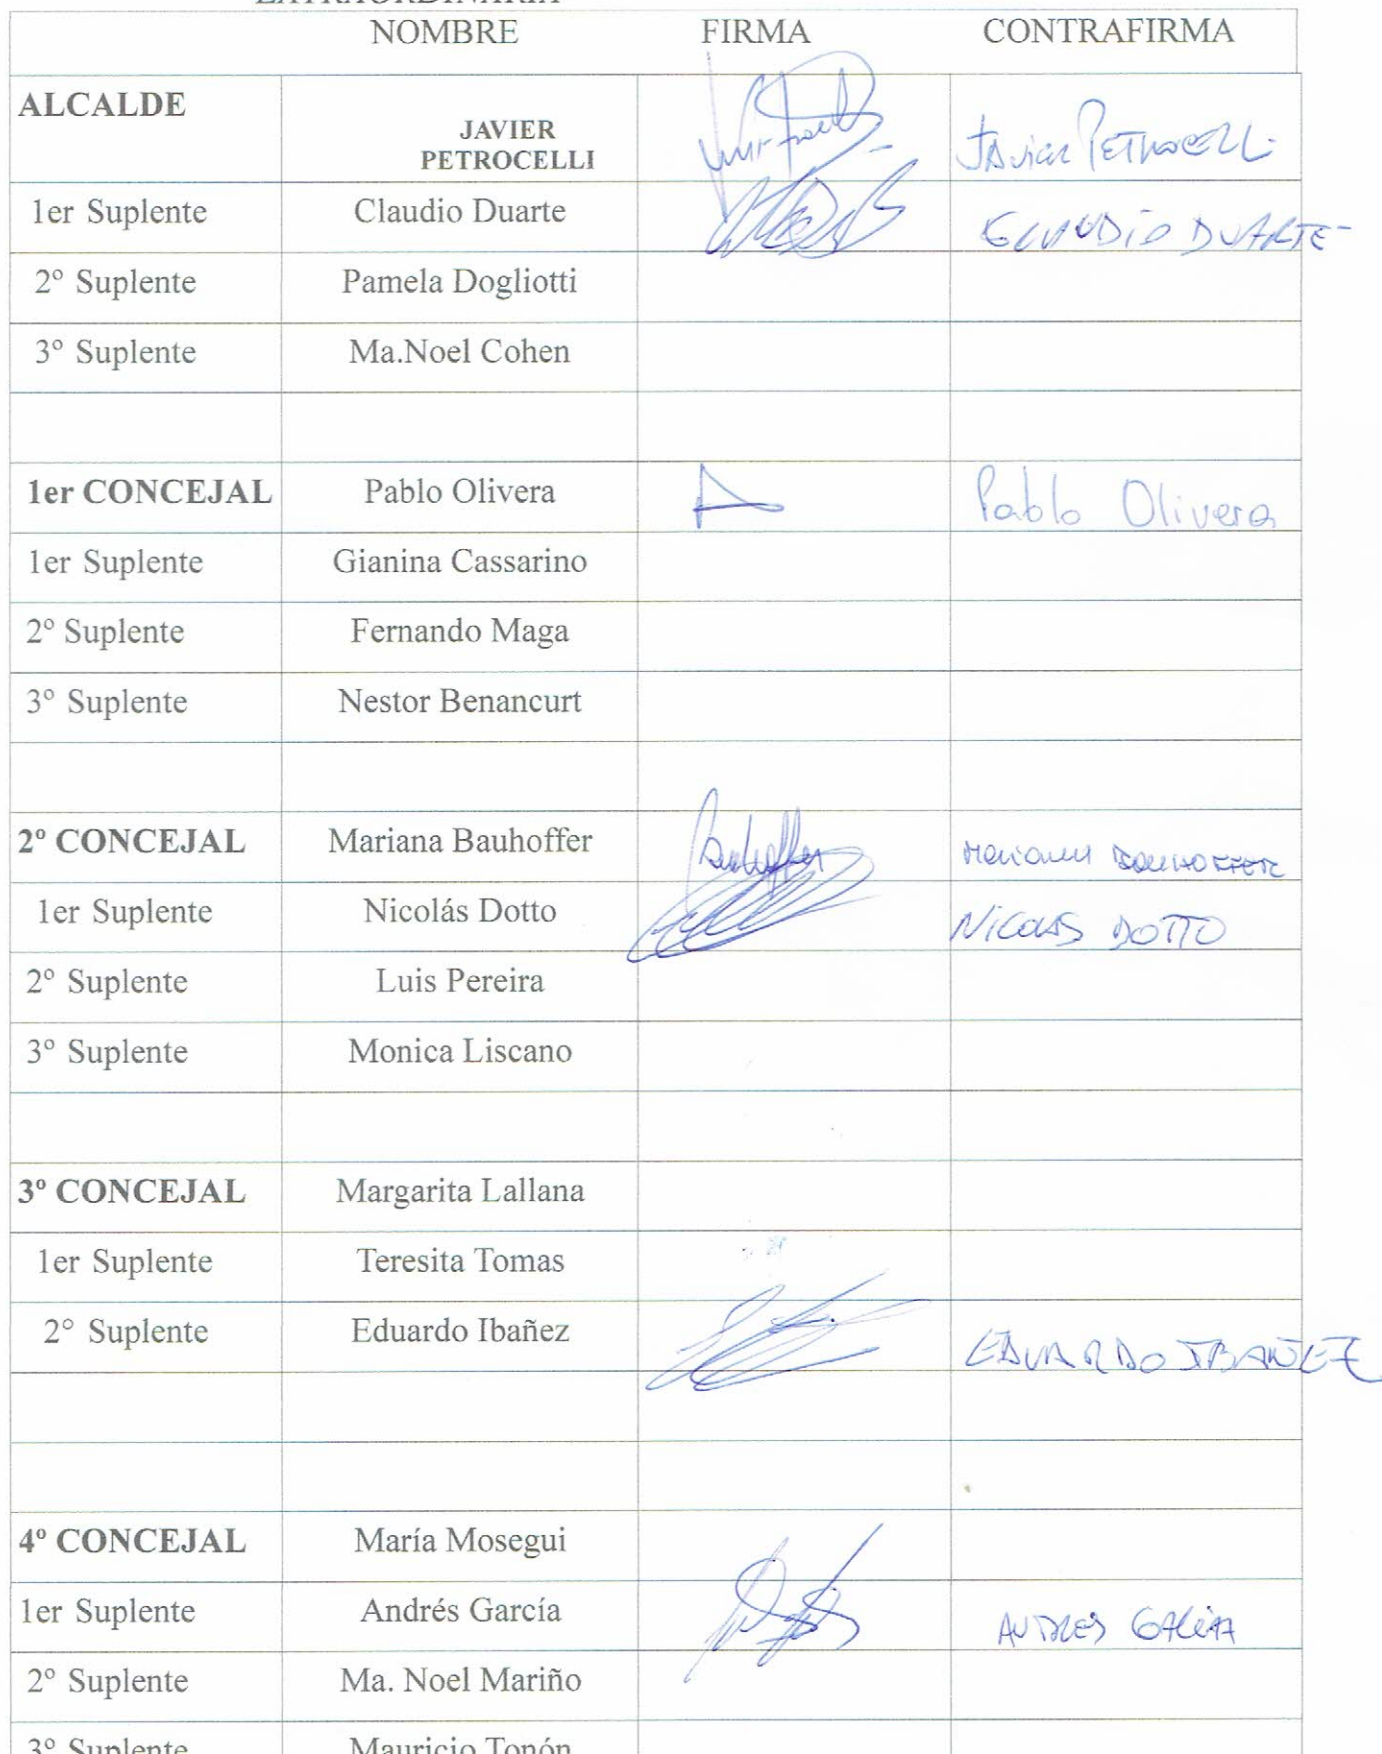 EXTRAORDINARIA
NOMBRE FIRMA CONTRAFIRMA
ALCALDE JAVIER PETROCELLI Javier PETROCELLI
1er Suplente Claudio Duarte CLAUDIO DUARTE
2º Suplente Pamela Dogliotti
3º Suplente Ma.Noel Cohen
1er CONCEJAL Pablo Olivera Pablo Olivera
1er Suplente Gianina Cassarino
2º Suplente Fernando Maga
3º Suplente Nestor Benancurt
2º CONCEJAL Mariana Bauhoffer Bauhoffer Mariana BAUHOFFER
1er Suplente Nicolás Dotto NICOLAS DOTTO
2º Suplente Luis Pereira
3º Suplente Monica Liscano
3º CONCEJAL Margarita Lallana
1er Suplente Teresita Tomas
2° Suplente Eduardo Ibañez EDUARDO IBAÑEZ
4º CONCEJAL María Mosegui
1er Suplente Andrés García ANDRES GARCIA
2º Suplente Ma. Noel Mariño
3º Suplente Mauricio Tonón